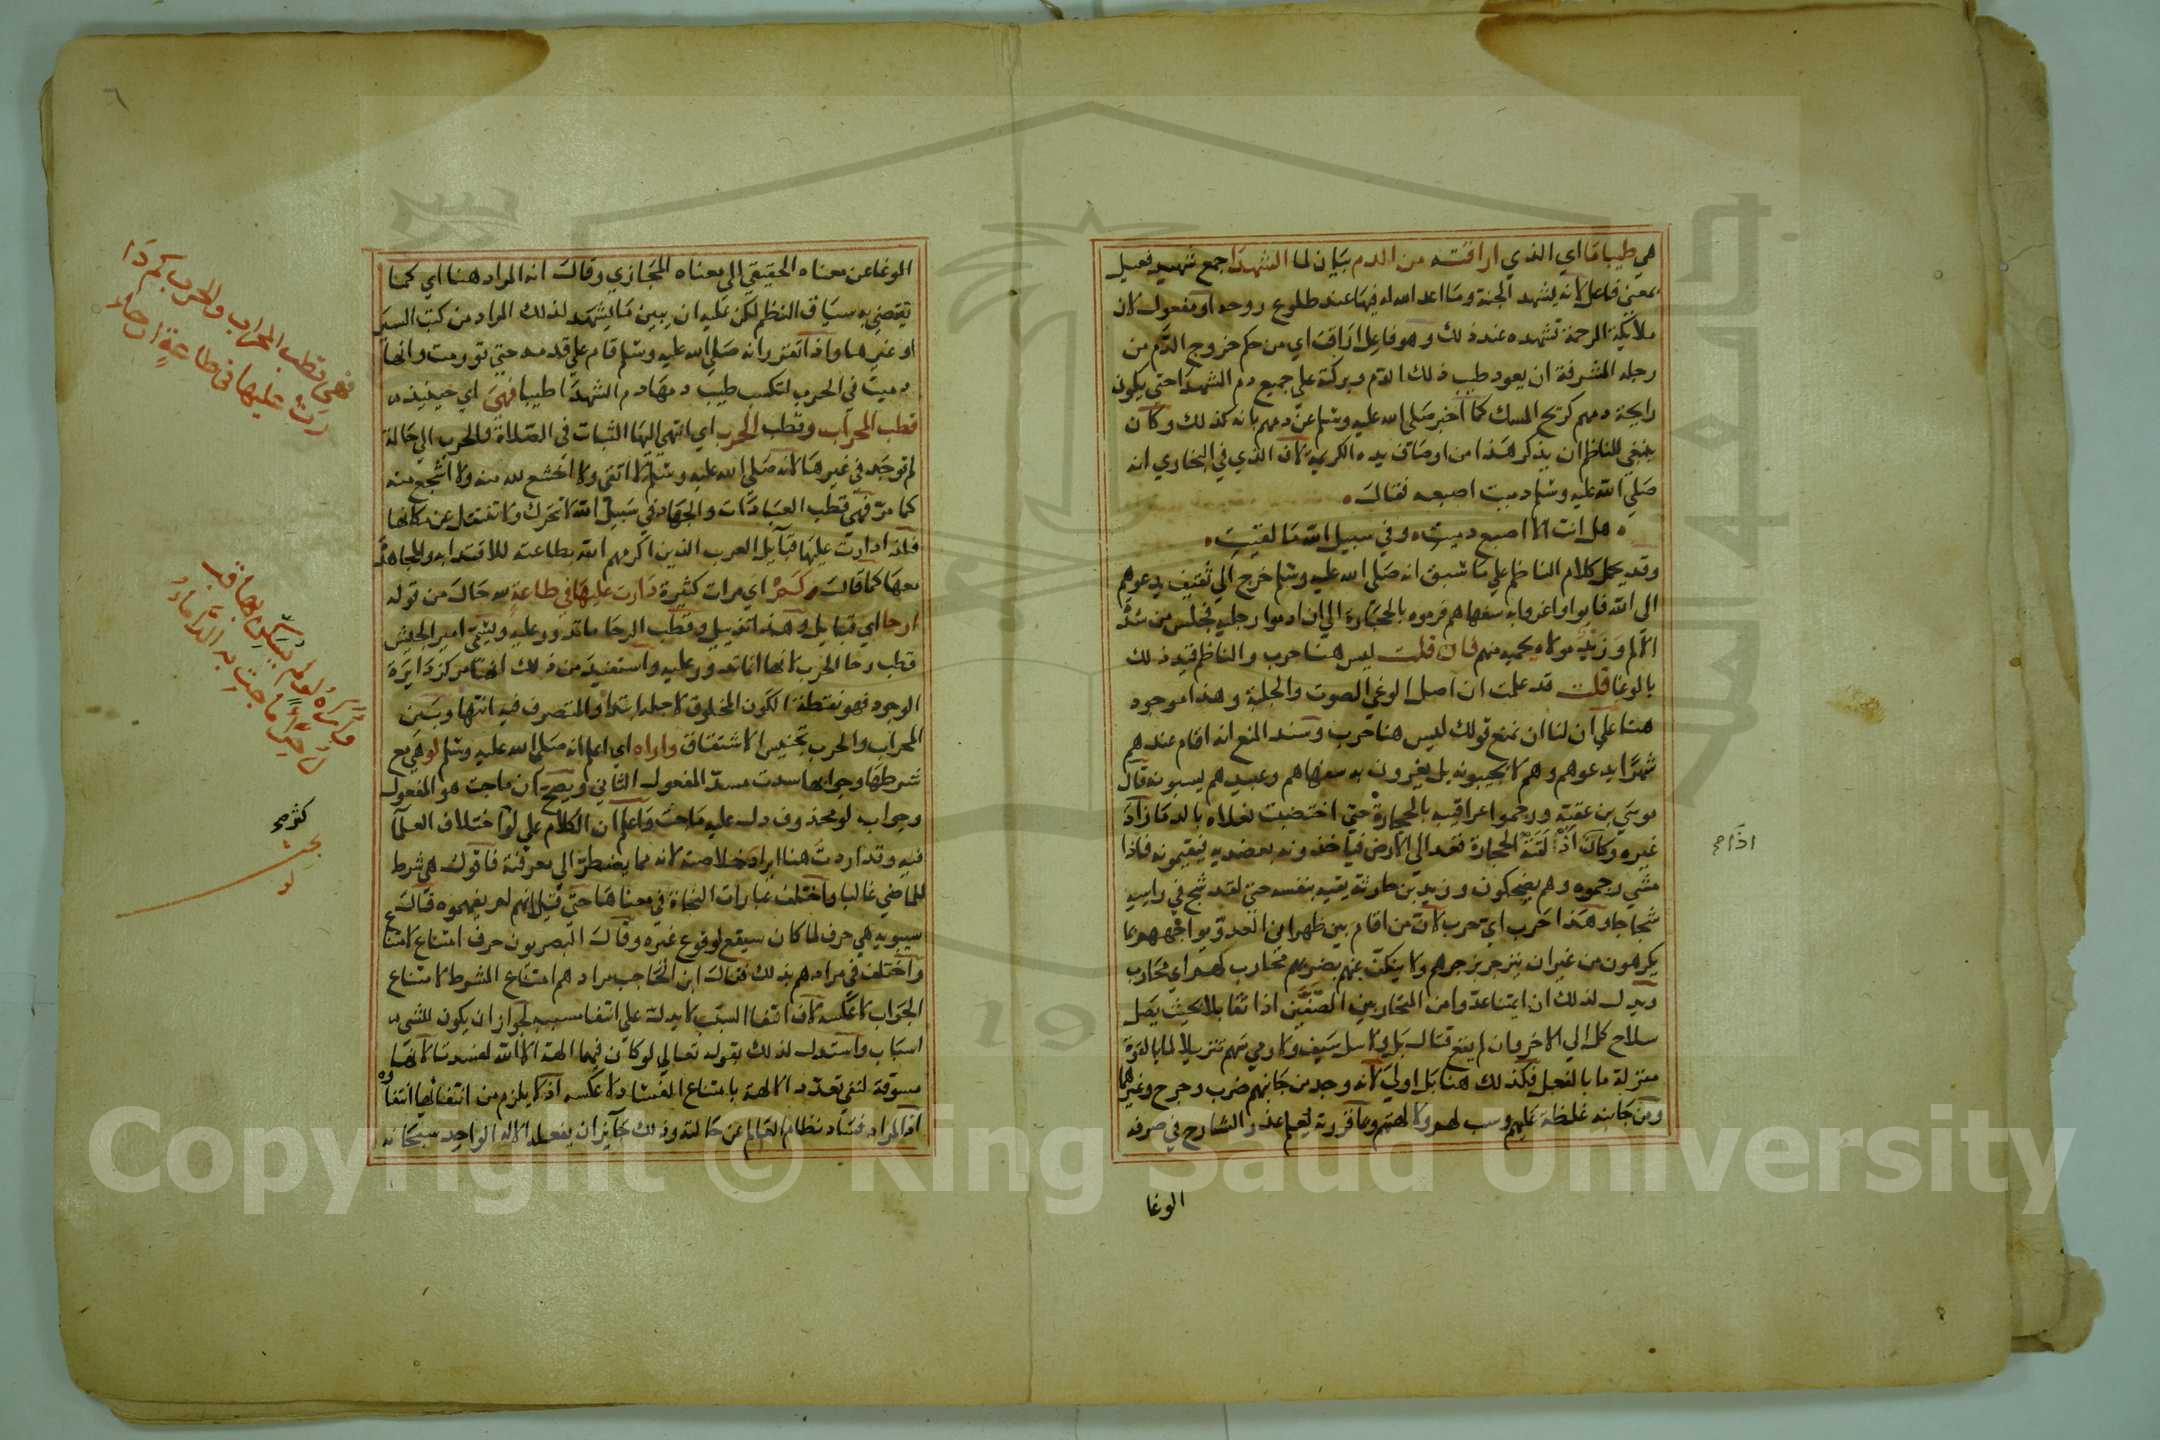 هي طيبا ما اي الذي اراقته من الدم بيان لما الشهدا جمع شهيد فعيل
بمعنى فاعل لانه يشهد الجنة وما اعد الله له فيها عند طلوع روحه او مفعول لان
ملايكة الرحمة تشهده عند ذلك وهو فاعل اراقت اي من حكم خروج الدم من
رجله المشرفة ان يعود طيب ذلك الدم وبركته علي جميع دم الشهدا حتي يكون
رايحة دمهم كريح المسك كما اخبر صلي الله عليه وسلم عن دمهم بانه كذلك وكان
ينبغي للناظم ان يذكر هذا من اوصاف يده الكريمة لان الذي في البخاري انه
صلي الله عليه وسلم دميت اصبعه فقال
هل انت الا اصبع دميت وفي سبيل الله ما لقيت
وقد يحمل كلام الناظم علي ما سبق انه صلي الله عليه وسلم خرج الي ثقيف يدعوهم
الي الله فابوا واغروا به سفهاهم فرموه بالحجارة الي ان ادموا رجليه فجلس من شدة
الالم وزيد مولاه يحميه منهم فان قلت ليس هنا حرب والناظم قيد ذلك
بالوغا قلت قد علمت ان اصل الوغي الصوت والجلبة وهذا موجود
هنا علي ان لنا ان نمنع قولك ليس هنا حرب وسند المنع انه اقام عندهم
شهرا يدعوهم وهم لا يجيبونه بل يغرون به سفهاهم وعبيدهم يسبونه قال
موسي بن عقبة ورجموا عراقيبه بالحجارة حتي اختضبت نعلاه بالدما زاد
غيره وكان اذلقته الحجارة قعد الي الارض فياخذونه بعضديه فيقيمونه فاذا
مشي رجموه وهم يضحكون وزيد بن حارثة يقيه بنفسه حتي لقد شج في راسه
شجاجا وهذا حرب اي حرب لان من اقام بين ظهراني العدو يواجههم بما
يكرهون من غير ان ينزجر بزجرهم ولا ينكف عنهم بضربهم محارب لهم اي محارب
ويدل لذلك ان ايمتنا عدوا من المتحاربين الصفين اذا تقابلا بحيث يصل
سلاح كل الي الاخر وان لم يقع قتال بل ولا سل سيف ولا رمي سهم تنزيلا لما بالقوة
منزلة ما بالفعل فكذلك هنا بل اولي لانه وجد من جانبهم ضرب وجرح وغيرهما
ومن جانبه غلظة عليهم وسب لهم ولالهتهم وبما قررته يعلم عذر الشارح في صرفه
الوغا
الوغا عن معناه الحقيقي الي معناه المجازي وقال انه المراد هنا اي كما
تقتضيه سياق النظم لكن عليه ان يبين ما يشهد لذلك المراد من كتب السير
او غيرها واذا تقرر انه صلي الله عليه وسلم قام علي قدمه حتي تورمت وانها
دميت في الحرب لتكسب طيب دمها دم الشهدا طيبا فهي اي حينيذ
قطب المحراب وقطب الحرب اي انتهي اليها الثبات في الصلاة والحرب الي حالة
لم توجد في غيرها لانه صلي الله عليه وسلم لا اتقي ولا اخشع لله منه ولا اشجع منه
كما مر فهي قطب العبادات والجهاد في سبيل الله لا تتحرك ولا تنتقل عن مكانها
فلذا دارت عليها قبايل العرب الذين اكرمهم الله بطاعته للاقتدا به والمجاهدة
معها كما قالت وكم اي مرات كثيرة دارت عليها في طاعة لله حال من قوله
ارحا اي قبايل وهذا تذييل وقطب الرحا ما تدور عليه ويسمي امير الجيش
قطب رحا الحرب لانها انما تدور عليه واستفيد من ذلك انها مركز دايرة
الوجود فهو نقطة الكون المخلوق لاجله ابتدا والمتصرف فيه انتها وبين
المحراب والحرب تجنيس الاشتقاق واراه اي اعلم انه صلي الله عليه وسلم لو هي مع
شرطها وجوابها سدت مسد المفعول الثاني ويصح ان ما جت هو المفعول
وجواب لو محذوف دل عليه ما جت واعلم ان الكلام علي لو اختلاف العلما
فيه وقد اردت هنا ايراد خلاصته لانه مما يضطر الي معرفته فاقول هي شرط
للماضي غالبا واختلف عبارات النحاة في معناها حتي قيل انهم لم يفهموه قال
سيبويه هي حرف لما كان سيقع لوقوع غيره وقال البصريون حرف امتناع لامتناع
واختلف في مرادهم بذلك فقال ابن الحاجب مرادهم امتناع الشرط لامتناع
الجواب لا عكسه لان انتفا السبب لا يدل علي انتفا مسببه لجواز ان يكون للشي
اسباب واستدل لذلك بقوله تعالي لو كان فيهما الهة الا الله لفسدتا لانها
مسوقة لنفي تعدد الالهة بامتناع الفساد لا عكسه اذ لا يلزم من انتفايها انتفاوه
اذ المراد فساد نظام العالم عن حالته وذلك جايز ان يفعله الاله الواحد سبحانه
فهي قطب المحراب والحرب كم دا
رت عليها في طاعة ارحاء
واراه لو لم يسكن بها قبل
حراء ماجت به الدأماء
بحث
لو
٦
Copyright © King Saud University